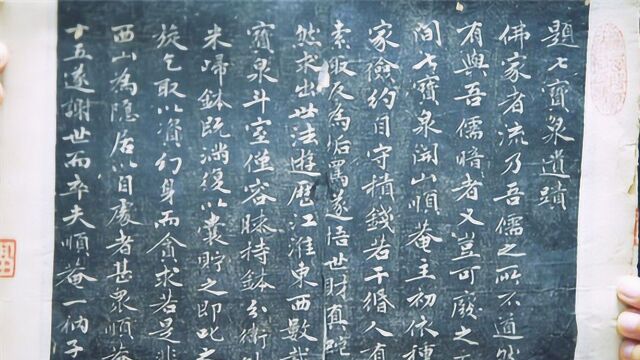 題七寶泉道蹟
佛家者流乃吾儒之所不道
有與吾儒暗者又豈可廢之
間七寶泉開山順菴主初依種
家儉約自守積錢若干緡人有
索取反為垢罵遂悟世財真
然求出世法遊歷江淮東西數
寶泉斗室僅容膝持鉢分衛
米歸鉢既滿復以囊貯之即此
旋乞取以資幻身而貪求若是
西山為隱居以自處者甚眾順菴
十五遂謝世而卒夫順菴一衲子